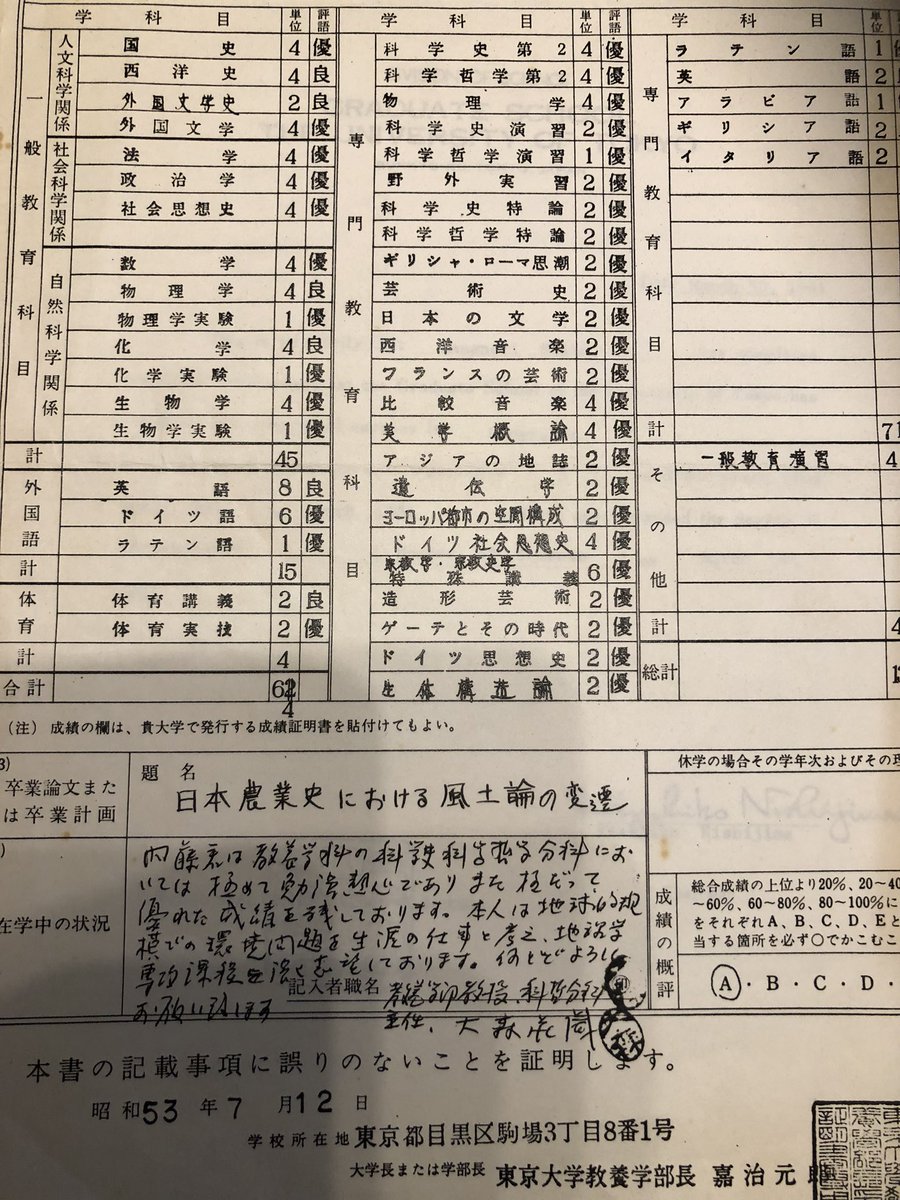 学科目 単位 評語 学科目 単位 評語 学科目 単位
一般教育科目
人文科学関係
国史 4 優
西洋史 4 良
外国文学史 2 良
外国文学 4 優
社会科学関係
法学 4 優
政治学 4 優
社会思想史 4 優
自然科学関係
数学 4 優
物理学 4 良
物理学実験 1 優
化学 4 良
化学実験 1 優
生物学 4 優
生物学実験 1 優
計 45
外国語
英語 8 良
ドイツ語 6 優
ラテン語 1 優
計 15
体育
体育講義 2 良
体育実技 2 優
計 4
合計
専門教育科目
科学史第2 4 優
科学哲学第2 4 優
物理学 4 優
科学史演習 2 優
科学哲学演習 1 優
野外実習 2 優
科学史特論 2 優
科学哲学特論 2 優
ギリシャ・ローマ思潮 2 優
芸術史 2 優
日本の文学 2 優
西洋音楽 2 優
フランスの芸術 2 優
比較音楽 4 優
美学概論 4 優
アジアの地誌 2 優
遺伝学 2 優
ヨーロッパ都市の空間構成 2 優
ドイツ社会思想史 4 優
宗教学・宗教史学
特殊講義 6 優
造形芸術 2 優
ゲーテとその時代 2 優
ドイツ思想史 2 優
生体構造論 2 優
専門教育科目
ラテン語 1
英語 2
アラビア語 1
ギリシア語 2
イタリア語 2
計 71
その他
一般教育演習 4
計 4
総計
(注) 成績の欄は、貴大学で発行する成績証明書を貼付けてもよい。
卒業論文また
は卒業計画
題名
日本農業史における風土論の変遷
休学の場合その学年次およびその理
在学中の状況
内藤君は教養学科の科学史科学哲学分科にお
いては極めて勉強熱心でありまた極だって
優れた成績を残しております。本人は地球的規
模での環境問題を生涯の仕事と考え、地理学
専攻課程を志望しております。何とぞよろしく
お願い致します
記入者職名 教養学部教授、科哲分科
主任、大森荘蔵
成績の概評
総合成績の上位より20%、20~40
~60%、60~80%、80~100%に
をそれぞれA、B、C、D、Eと
当する箇所を必ず○でかこむこ
A・B・C・D・
本書の記載事項に誤りのないことを証明します。
昭和53年7月12日
学校所在地 東京都目黒区駒場3丁目8番1号
大学長または学部長 東京大学教養学部長 嘉治元郎